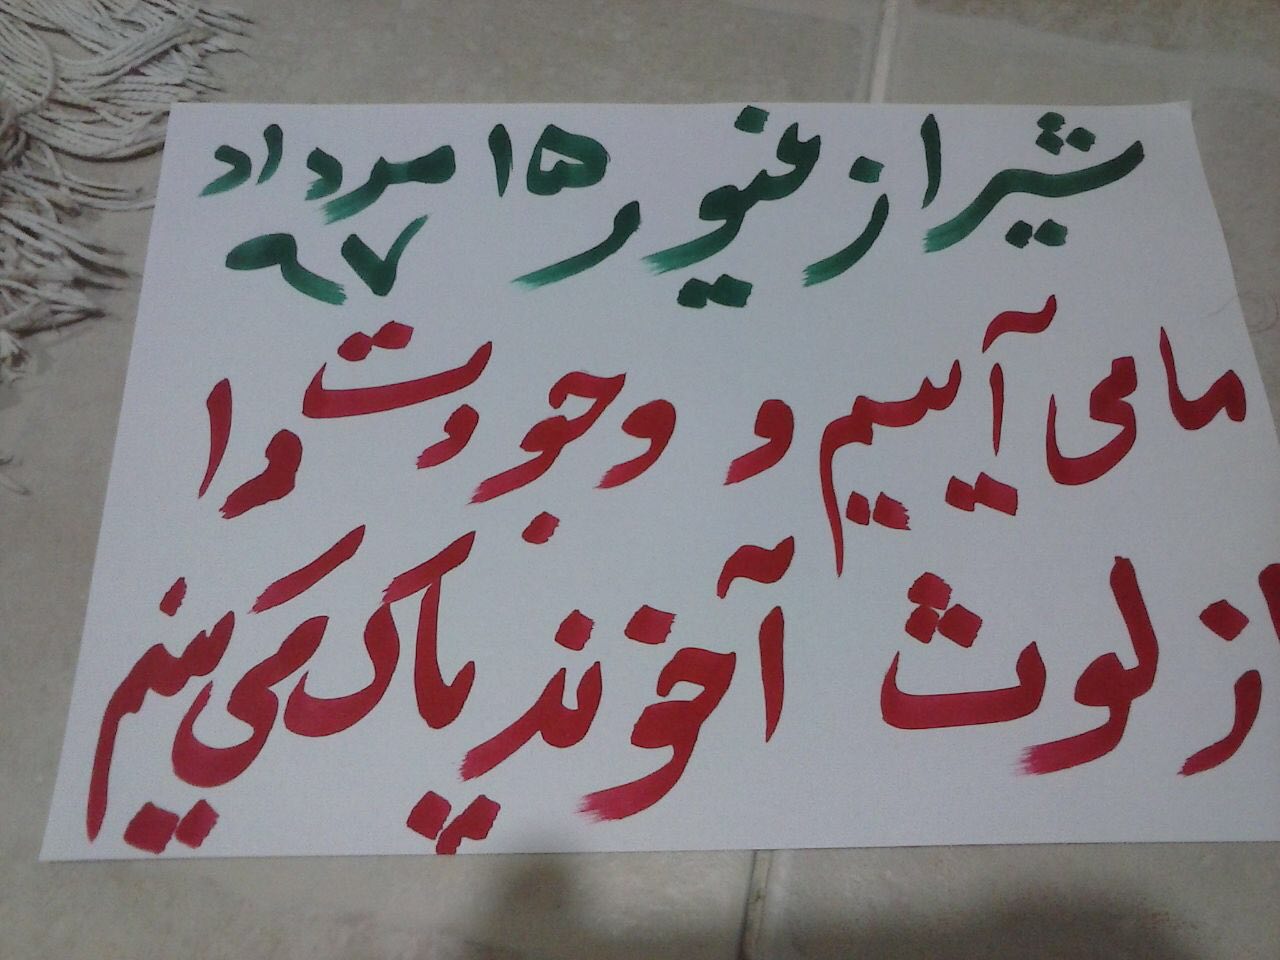 شیراز غیور ۱۵ مرداد
۹۷
ما می آییم و وجودت را
از لوث آخوند پاک می کنیم